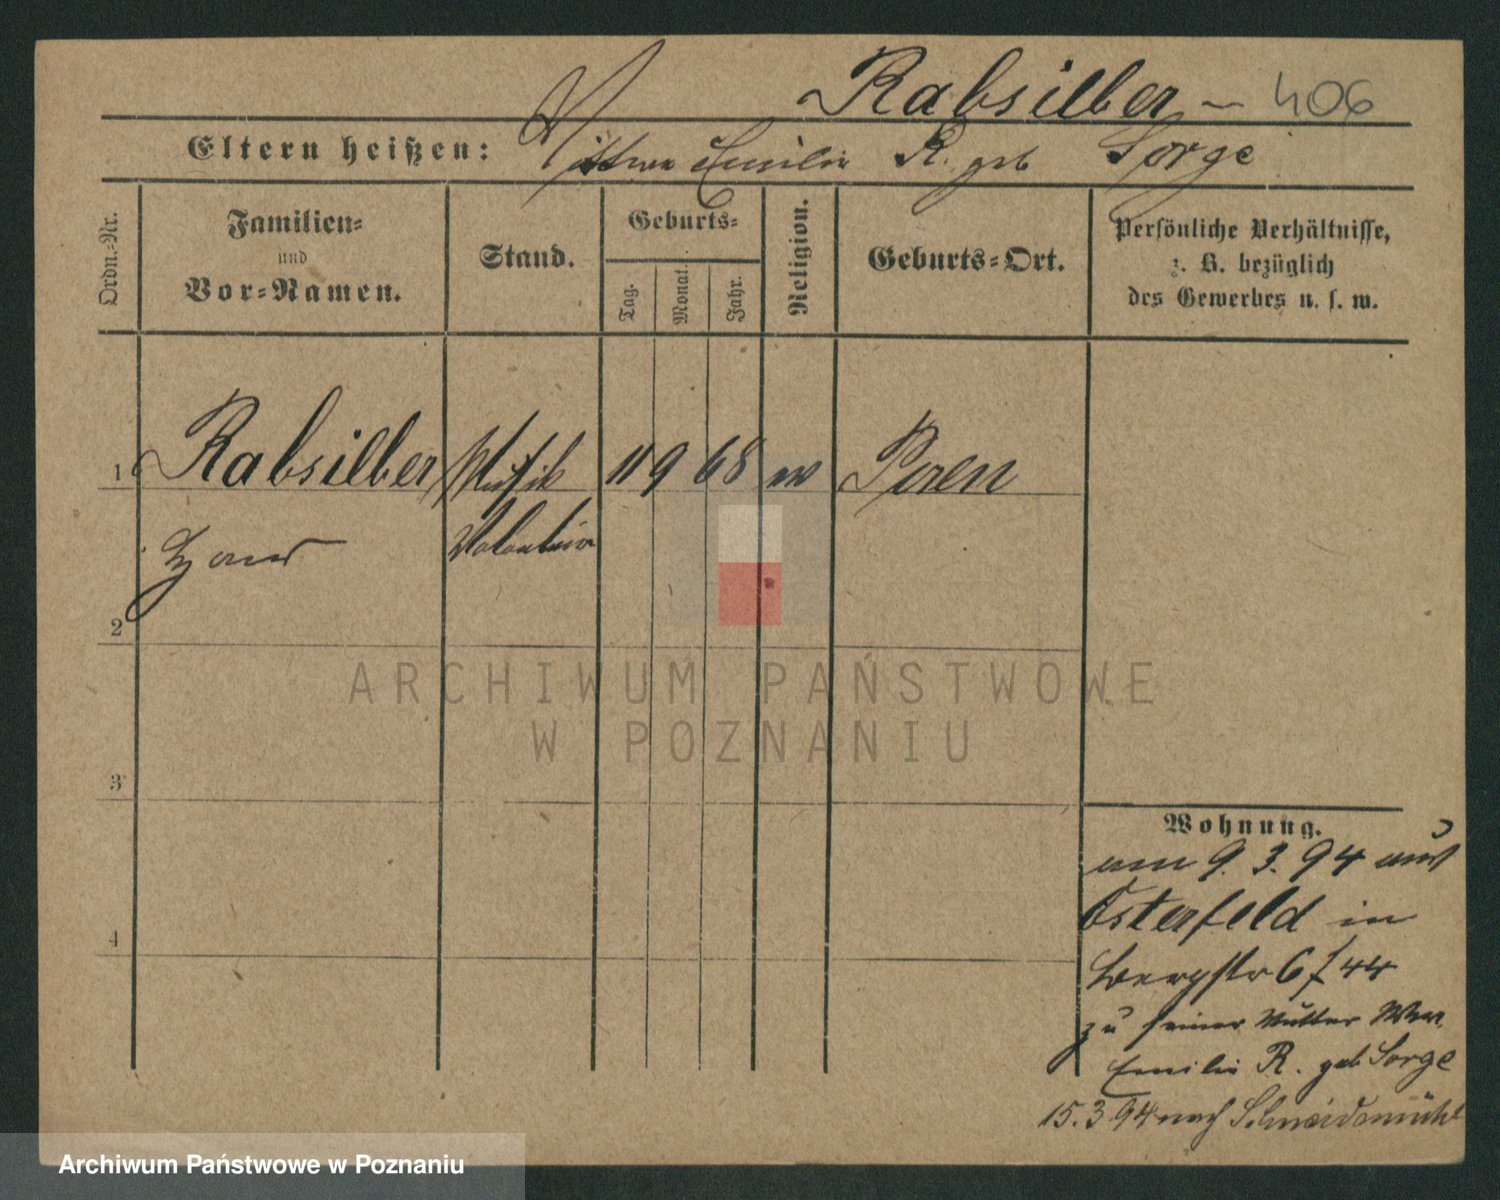 Rabsilber – 406
Eltern heißen: Wittwe Emilie R. geb Sorge
Ordn.-Nr.
Familien-
und
Vor-Namen.
Stand.
Geburts-
Tag.
Monat.
Jahr.
Religion.
Geburts-Ort.
Persönliche Verhältnisse,
z. B. bezüglich
des Gewerbes u. s. w.
1 Rabsilber Musik 11 9 68 ev Posen
Hans
2
3
4
ARCHIWUM PAŃSTWOWE
W POZNANIU
Wohnung.
am 9. 3. 94 aus
Osterfeld in
Bergstr 6 / 44
zu seiner Mutter Wwe
Emilie R. geb Sorge
15.3.94 nach Schneidemühl
Archiwum Państwowe w Poznaniu